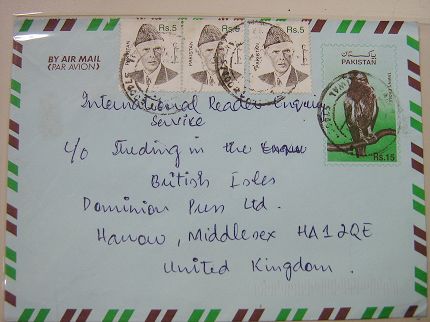 BY AIR MAIL
(PAR AVION)
Rs.5
Rs.5
Rs.5
PAKISTAN
PAKISTAN
PAKISTAN
پاکستان
PAKISTAN
Rs.15
International Reader Enquiry
Service
c/o Finding in the
British Isles
Dominion Press Ltd.
Harrow, Middlesex HA1 2QE
United Kingdom.